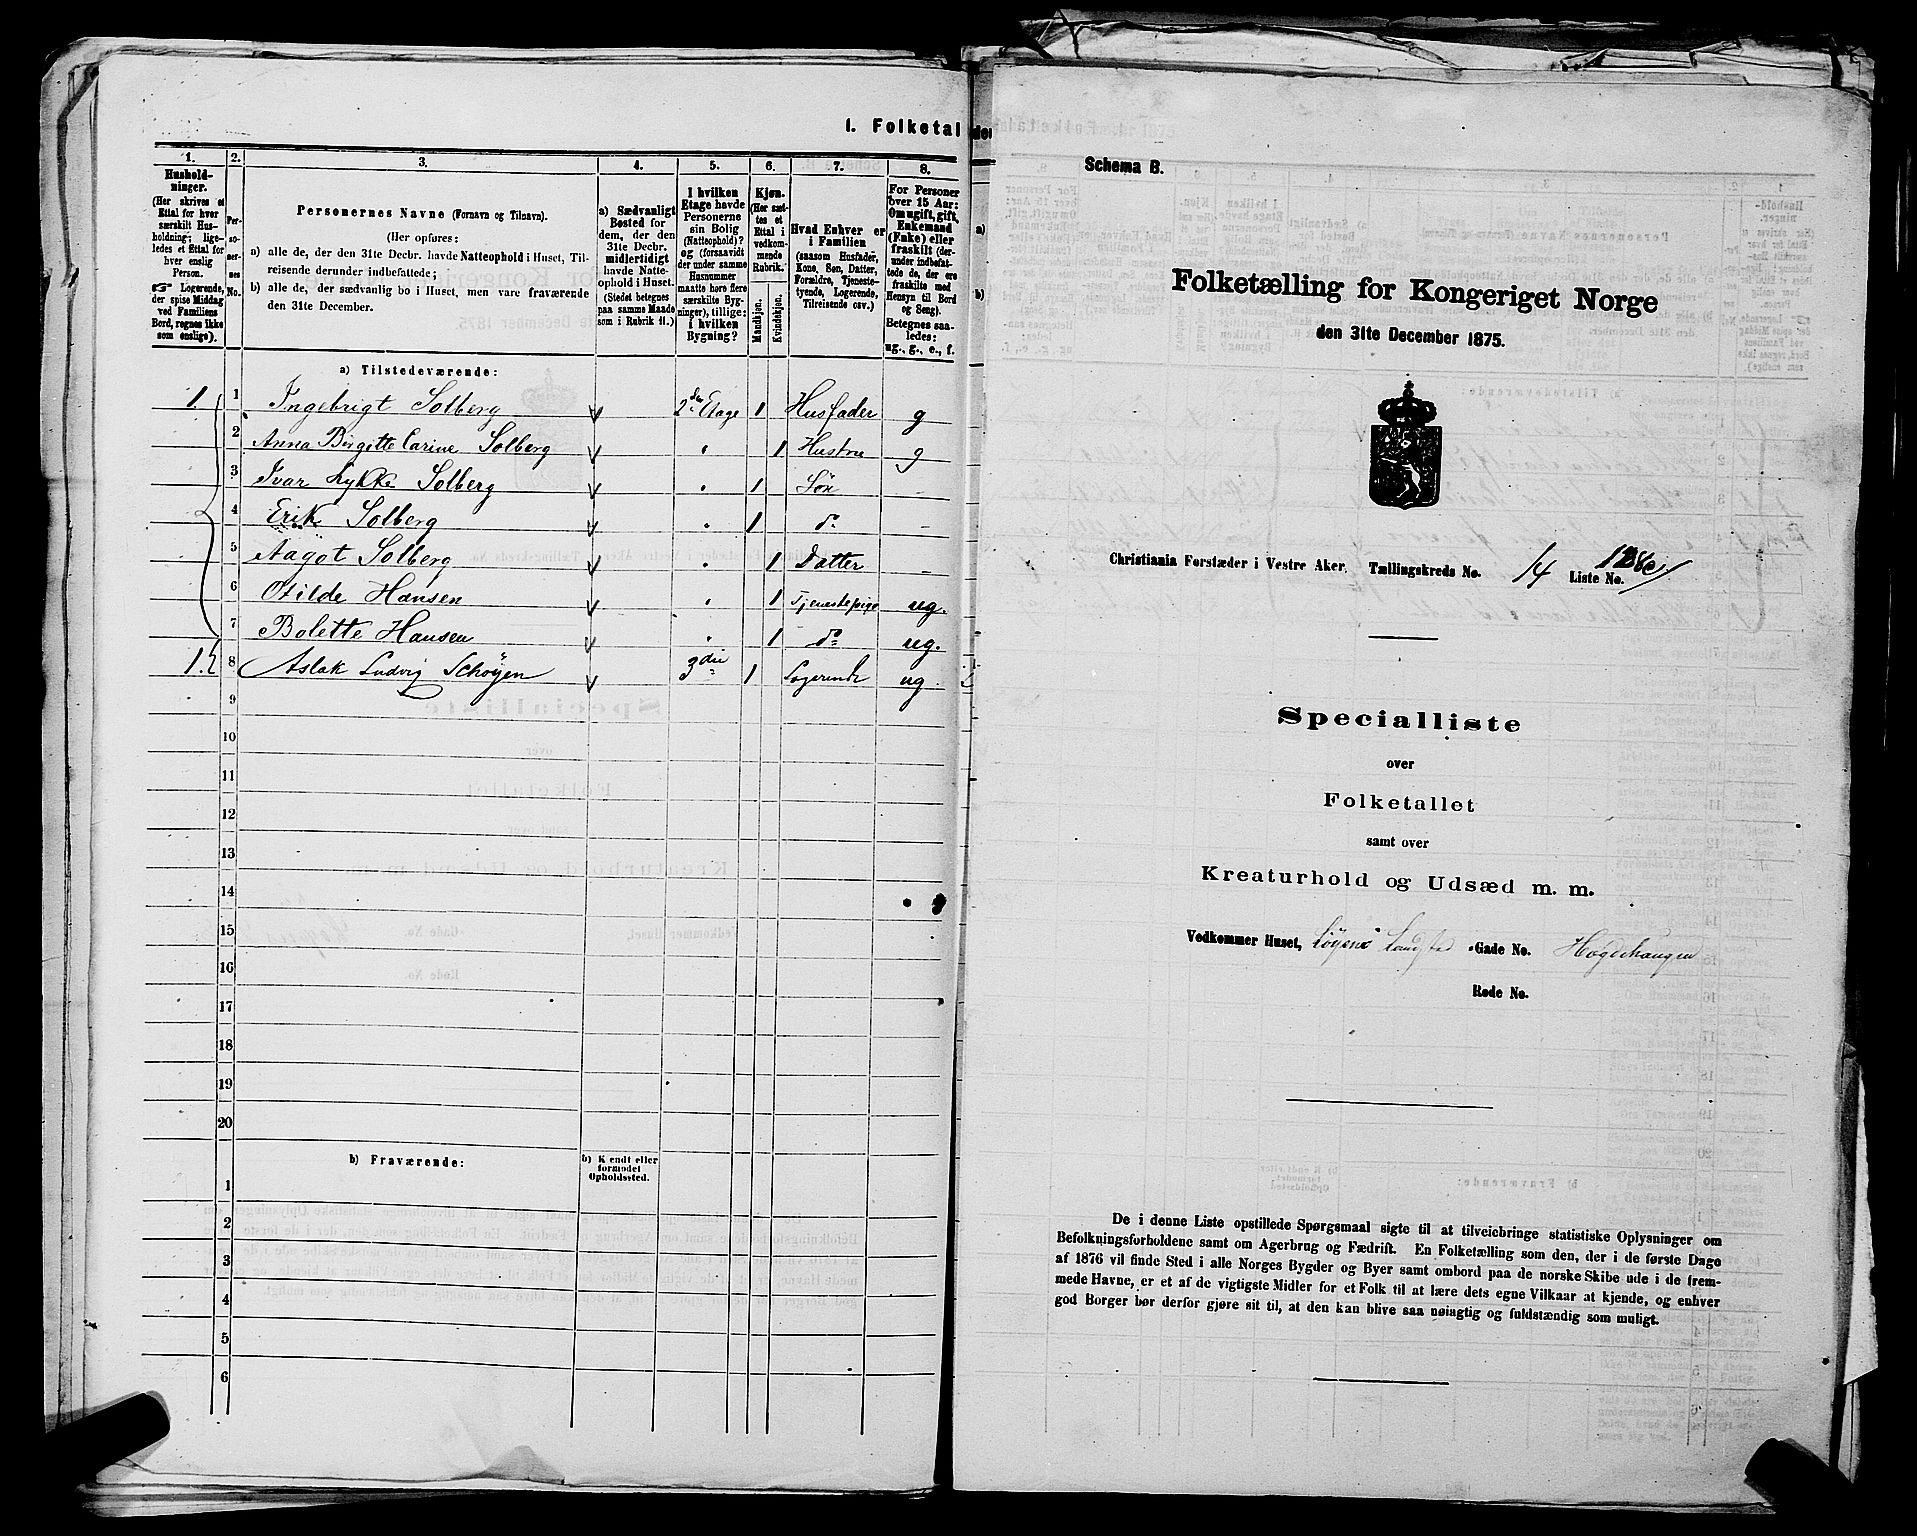 I. Folketal
1.
2.
3.
4.
5.
6.
7.
8.
Hushold-
ninger.
(Her skrives et
Ettal for hver
særskilt Hus-
holdning; lige-
ledes et Ettal for
hver enslig
Person.
☞ Logerende,
der spise Middag
ved Familiens
Bord, regnes ikke
som enslige).
Per-
so-
ner-
nes
No.
Personernes Navne (Fornavn og Tilnavn).
(Her opføres:
a) alle de, der den 31te Decbr. havde Natteophold i Huset, Til-
reisende derunder indbefattede;
b) alle de, der sædvanlig bo i Huset, men vare fraværende
den 31te December.
a) Sædvanligt
Bosted for
dem, der den
31te Decbr.
midlertidigt
havde Natte-
ophold i Huset.
(Stedet betegnes
paa samme Maade
som i Rubrik 11.)
I hvilken
Etage havde
Personerne
sin Bolig
(Natteophold)?
og (forsaavidt
der under samme
Husnummer
maatte høre flere
særskilte Byg-
ninger), tillige:
i hvilken
Bygning?
Kjøn.
(Her sæt-
tes et
Ettal i
vedkom-
mende
Rubrik.)
Mandkjøn.
Kvindekjøn.
Hvad Enhver er
i Familien
(saasom Husfader,
Kone, Søn, Datter,
Forældre, Tjeneste-
tyende, Logerende,
Tilreisende osv.)
For Personer
over 15 Aar:
Om ugift, gift,
Enkemand
(Enke) eller
fraskilt (der-
under indbefat-
tede de, der ere
fraskilte med
Hensyn til Bord
og Seng).
Betegnes saa-
ledes:
ug., g., e., f.
a) Tilstedeværende:
1. 1 Ingebrigt Solberg 2den Etage 1 Husfader g
2 Anna Birgitte Carine Solberg " 1 Hustru g
3 Ivar Lykke Solberg " 1 Søn -
4 Erik Solberg " 1 do -
5 Aagot Solberg " 1 Datter -
6 Otilde Hansen " 1 Tjenestepige ug.
7 Bolette Hansen " 1 do ug.
1. 8 Aslak Ludvig Schøyen 3die " 1 Logerende ug
9
10
11
12
13
14
15
16
17
18
19
20
b) Fraværende:
b) Kendt eller
formodet
Opholdssted.
1
2
3
4
5
6
Schema B.
Folketælling for Kongeriget Norge
den 31te December 1875.
Christiania Forstæder i Vestre Aker. Tællingskreds No. 14 Liste No.
Specialliste
over
Folketallet
samt over
Kreaturhold og Udsæd m. m.
Vedkommer Huset, Gade No. Hægdehaugen
Rode No.
De i denne Liste opstillede Spørgsmaal sigte til at tilveiebringe statistiske Oplysninger om
Befolkningsforholdene samt om Agerbrug og Fædrift. En Folketælling som den, der i de første Dage
af 1876 vil finde Sted i alle Norges Bygder og Byer samt ombord paa de norske Skibe ude i de frem-
mede Havne, er et af de vigtigste Midler for et Folk til at lære dets egne Vilkaar at kjende, og enhver
god Borger bør derfor gjøre sit til, at den kan blive saa nøiagtig og fuldstændig som muligt.